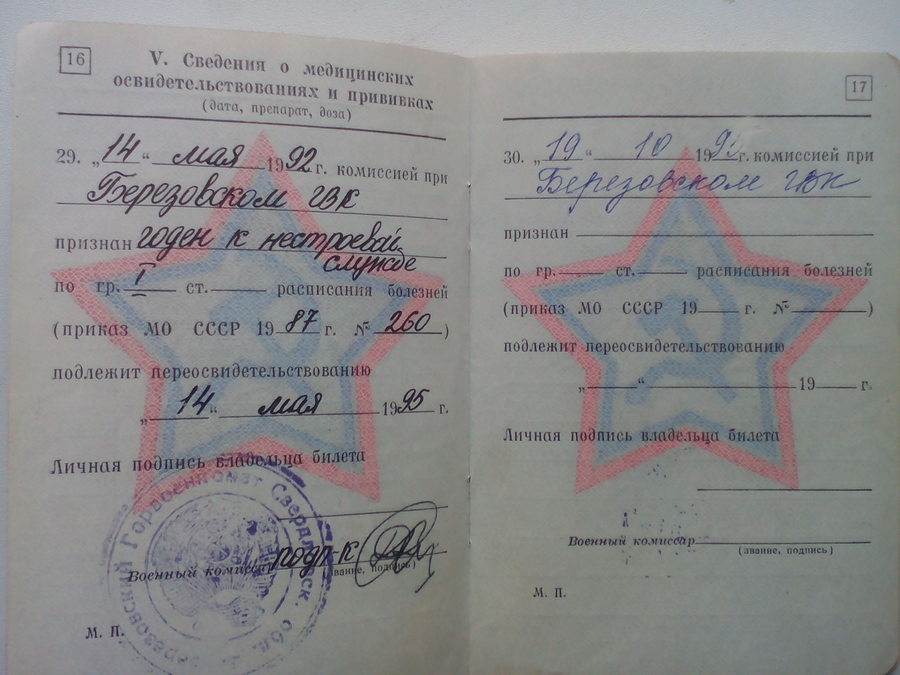 16
V. Сведения о медицинских
освидетельствованиях и прививках
(дата, препарат, доза)
29. „14“ мая 1992 г. комиссией при
Березовском ГВК
признан годен к нестроевой
службе
по гр. I ст. расписания болезней
(приказ МО СССР 1987 г. № 260)
подлежит переосвидетельствованию
„14“ мая 1995 г.
Личная подпись владельца билета
Военный комиссар подп-к
(звание, подпись)
М. П.
Березовский Горвоенкомат Свердловск. обл.
17
30. „19“ 10 199 г. комиссией при
Березовском ГВК
признан
по гр. ст. расписания болезней
(приказ МО СССР 19 г. № )
подлежит переосвидетельствованию
„ “ 19 г.
Личная подпись владельца билета
Военный комиссар
(звание, подпись)
М. П.